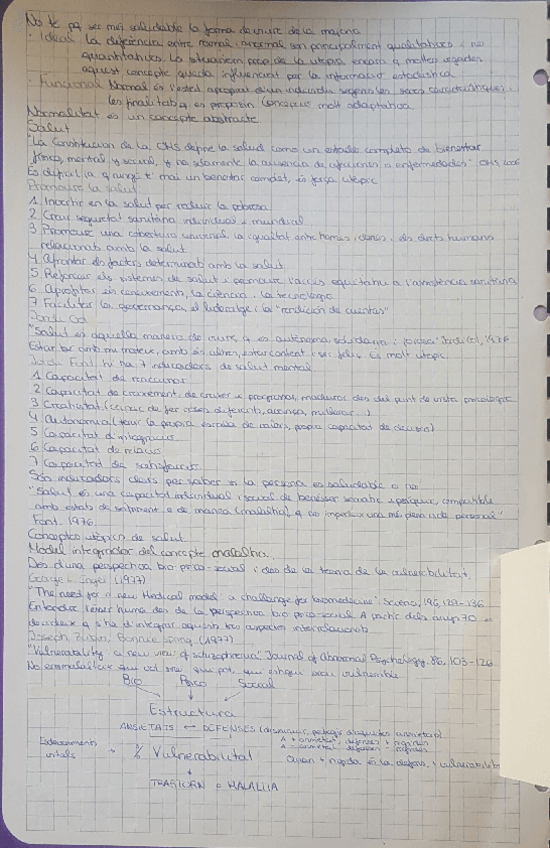 No té pq ser més saludable la forma de viure de la majoria
· Ideal La diferència entre normal i anormal son principalment qualitatives i no
quantitatives. La situaríem prop de la utopia encara q moltes vegades
aquest concepte queda influenciat per la informació estadística.
· Funcional Normal és l'estat apropiat d'un individu segons les seves característiques i
les finalitats q es proposin. Concepte molt adaptatiu
Normalitat és un concepte abstracte.
Salut
"La Constitucion de la OMS define la salud como un estado completo de bienestar
físico, mental y social, y no solamente la ausencia de afecciones o enfermedades" OMS,
És difícil q ningú té mai un benestar complet, és força utòpic
Promoure la salut:
1. Invertir en la salut per reduir la pobresa
2. Crear seguretat sanitària individual i mundial
3. Promoure una cobertura universal, la igualtat entre homes i dones i els drets humans
relacionats amb la salut
4. Afrontar els factors determinats amb la salut
5. Reforçar els sistemes de salut i promoure l'accés equitatiu a l'assistència sanitària
6. Aprofitar els coneixements, la ciència i la tecnologia
7. Facilitar la governança, el lideratge i la "rendición de cuentas"
Jordi Gol
"Salut és aquella manera de viure q és autònoma, solidària i joiosa" Jordi Gol, 1976
Estar bé amb mi mateix, amb els altres, estar content i ser feliç és molt utòpic.
Jordi Font hi ha 7 indicadors de salut mental
1. Capacitat de renunciar
2. Capacitat de creixement, de créixer i progressar, madurar des del punt de vista psicològic
3. Creativitat (capaç de fer coses diferents, avançar, millorar...)
4. Autonomia (tenir la pròpia escala de valors, pròpia capacitat de decisió)
5. Capacitat d'integració
6. Capacitat de relació
7. Capacitat de satisfacció
Són indicadors claus per saber si la persona és saludable o no
"Salut és una capacitat individual i social de benestar somàtic i psíquic, compatible
amb estats de sofriment o de manca (malaltia) q no impedeixi una més plena vida personal"
Font, 1976.
Conceptes utòpics de salut.
Model integrador del concepte malaltia.
Des d'una perspectiva bio-psico-social i des de la teoria de la vulnerabilitat,
George L. Engel (1977)
"The need for a new Medical model: a challenge for biomedicine". Science, 196, 129-136
Entendre l'ésser humà des de la perspectiva bio-psico-social. A partir dels anys 70 es
descobreix q s'ha d'integrar aquests tres aspectes interrelacionats
Joseph Zubin, Bonnie Spring (1977)
"Vulnerability: a new view of schizophrenia" Journal of Abnormal Psychology, 86, 103-126
No emmalalteix qui vol sinó qui pot, qui estigui sent vulnerable
Bio Psico Social
Estructura
ANSIETATS ↔ DEFENSES
Esdeveniments
vitals → % Vulnerabilitat
TRASTORN o MALALTIA